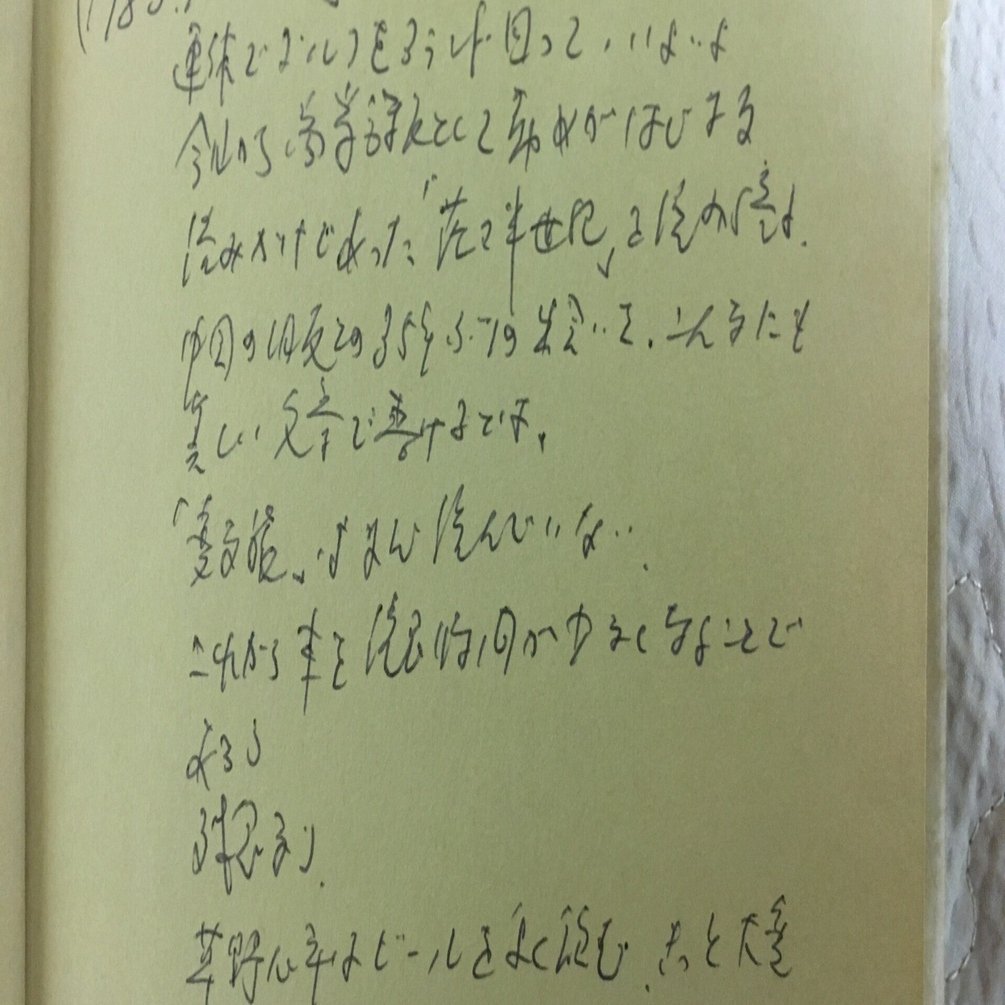 連休でゴルフを3ラウンド回って、いよいよ
今日から 学課長として勤めがはじまる
読みかけであった「茫々半世紀」を読み終る。
中国の旧友との35年ぶりの出会いを、こんなにも
美しい文章で書けるとは。
はまだ読んでいない。
これから本を読む時間が少なくなることで
あろう
残念なり。
草野心平はビールをよく飲む。きっと大量